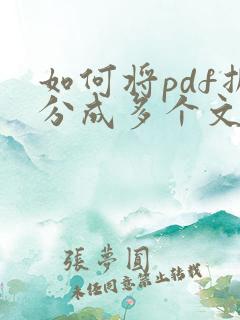 如何将pdf拆
分成多个文
張夢圓
未经同意禁止转载